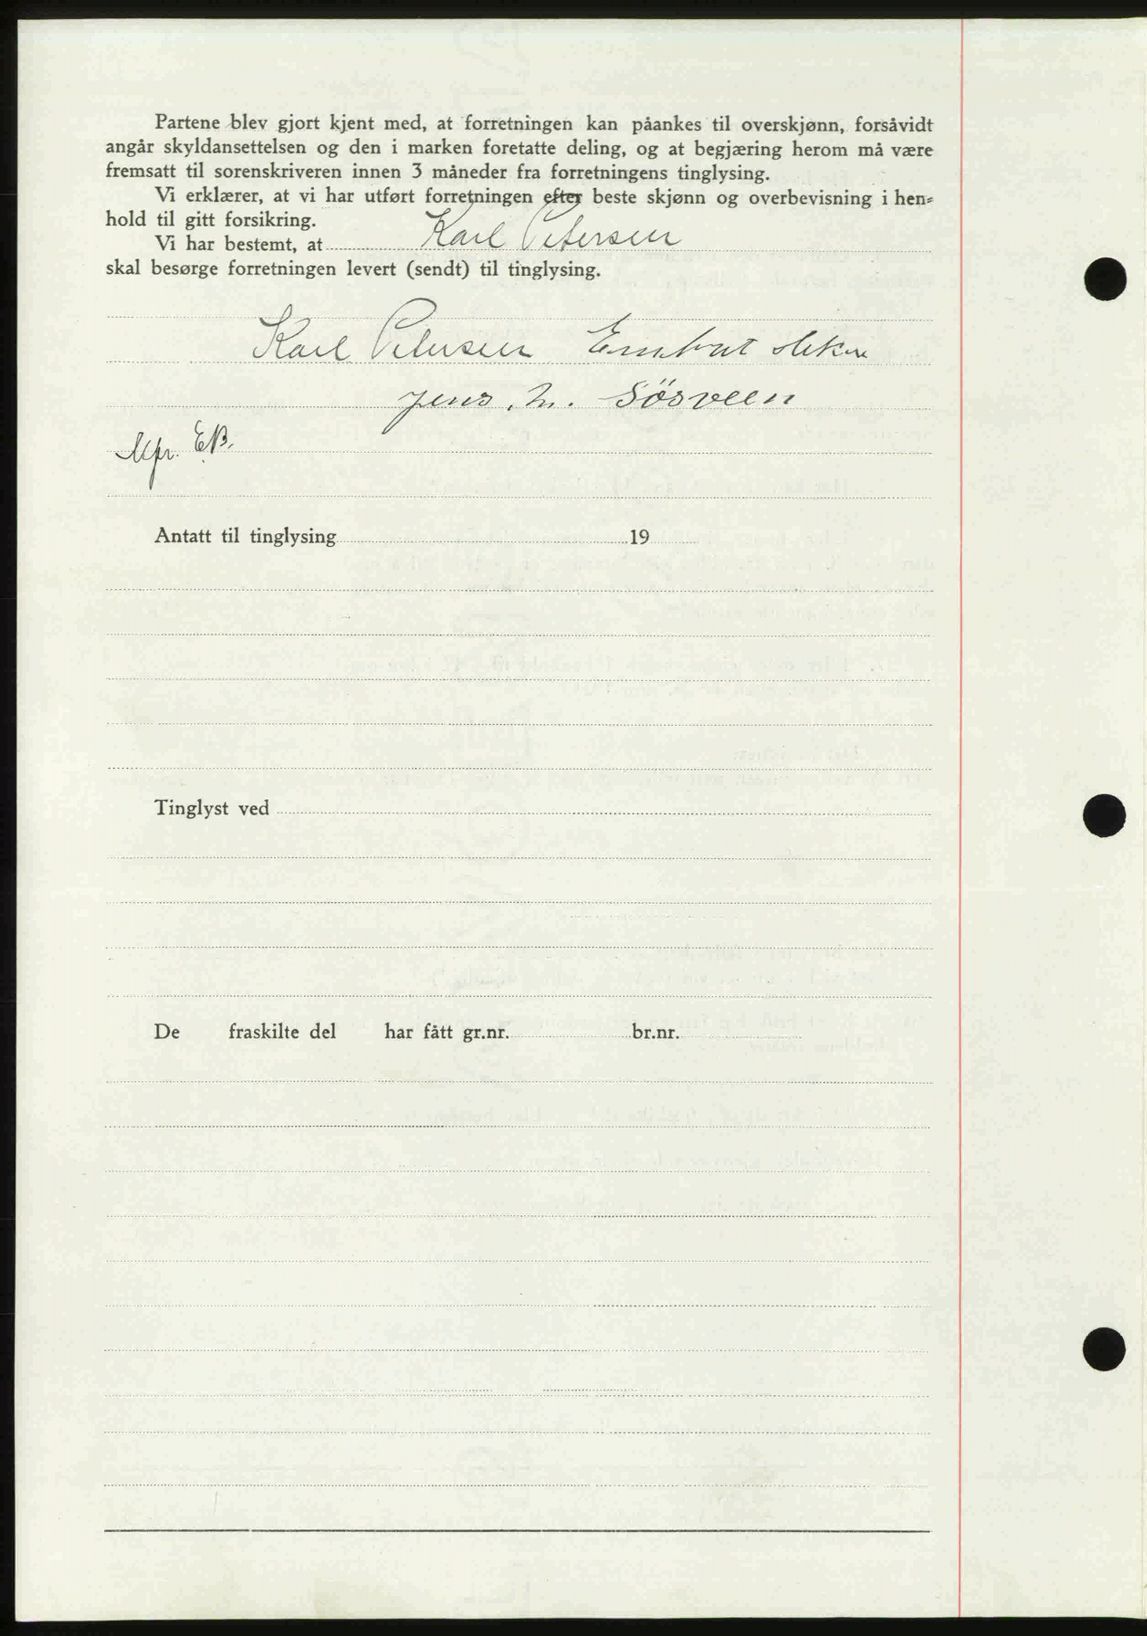 Partene blev gjort kjent med, at forretningen kan påankes til overskjønn, forsåvidt
angår skyldansettelsen og den i marken foretatte deling, og at begjæring herom må være
fremsatt til sorenskriveren innen 3 måneder fra forretningens tinglysing.
Vi erklærer, at vi har utført forretningen efter beste skjønn og overbevisning i hen=
hold til gitt forsikring.
Vi har bestemt, at Karl Petersen
skal besørge forretningen levert (sendt) til tinglysing.
Karl Petersen
Jens. M. Sösveen
EB.
Antatt til tinglysing 19
Tinglyst ved
De fraskilte del har fått gr.nr. br.nr.